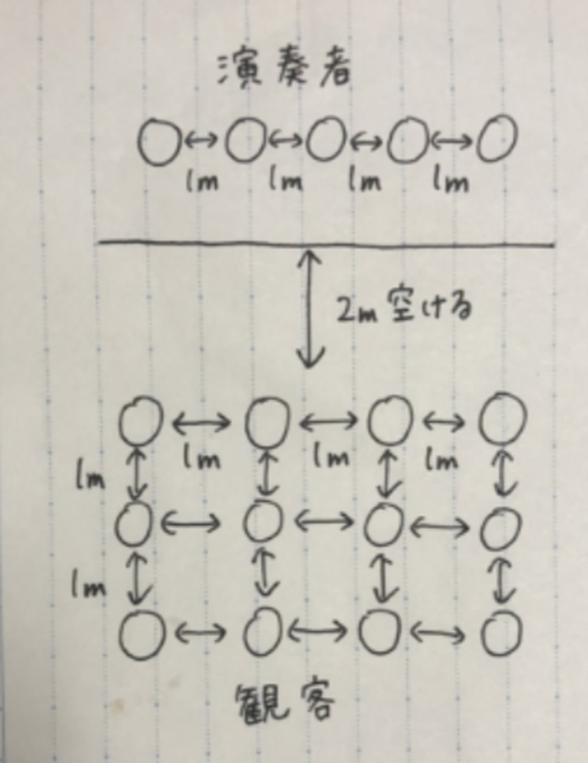 演奏者
1m 1m 1m 1m
2m 空ける
1m 1m 1m
1m
1m
観客